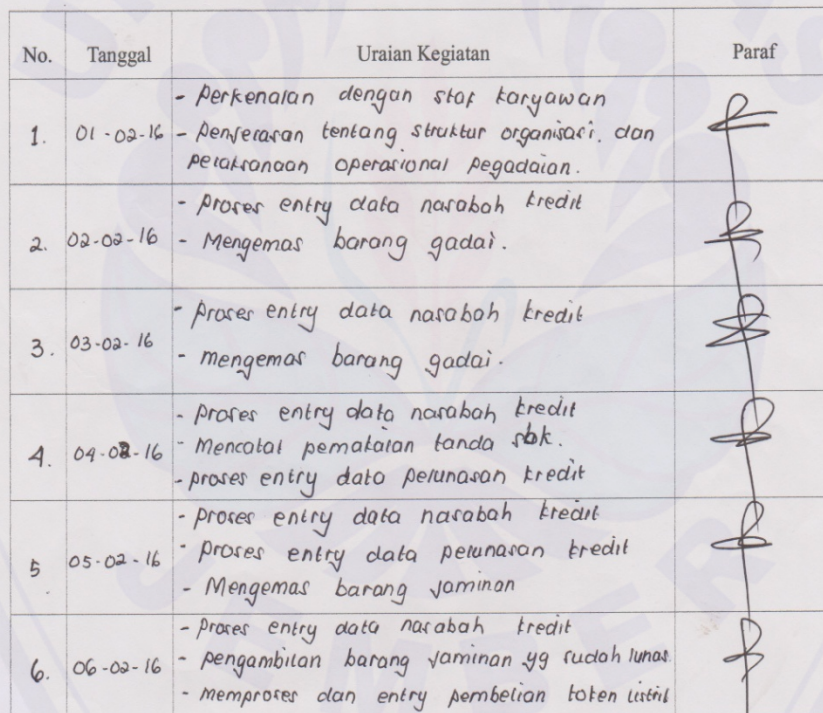 No. Tanggal Uraian Kegiatan Paraf
- Perkenalan dengan staf karyawan
1. 01-02-16 - Penjelasan tentang struktur organisasi. dan
pelaksanaan operasional pegadaian.
- proses entry data nasabah kredit
2. 02-02-16 - Mengemas barang gadai.
- Proses entry data nasabah kredit
3. 03-02-16
- mengemas barang gadai.
- Proses entry data nasabah kredit
4. 04-02-16 - Mencatat pemakaian tanda sbk.
- proses entry data pelunasan kredit
- proses entry data nasabah kredit
5. 05-02-16 - Proses entry data pelunasan kredit
- Mengemas barang jaminan
- Proses entry data nasabah kredit
6. 06-02-16 - pengambilan barang jaminan yg sudah lunas
- memproses dan entry pembelian token listrik